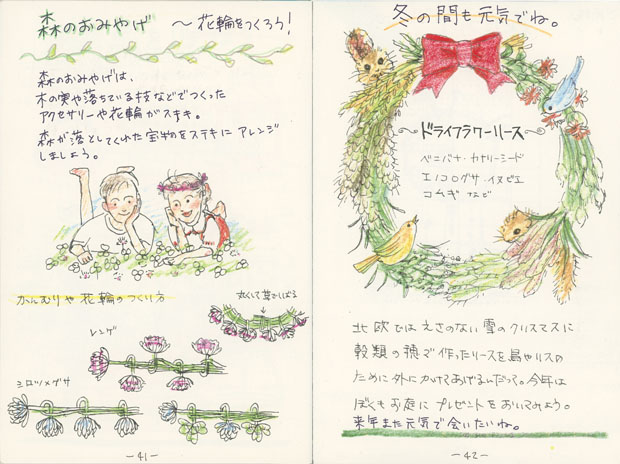 森のおみやげ 〜花輪をつくろう!
森のおみやげは、
木の実や落ちている枝などでつくった
アクセサリーや花輪がステキ。
森が落としてくれた宝物をステキにアレンジ
しましょう。
かんむりや花輪のつくり方
丸くして草でしばる
レンゲ
シロツメグサ
-41-
冬の間も元気でね。
ドライフラワーリース
ベニバナ・カナリーシード
エノコログサ・イヌビエ
コムギ など
北欧ではえさのない雪のクリスマスに
穀類の穂で作ったリースを鳥やリスの
ために外にかけてあげるんだって。今年は
ぼくもお庭にプレゼントをおいてみよう。
来年また元気で会いたいね。
-42-